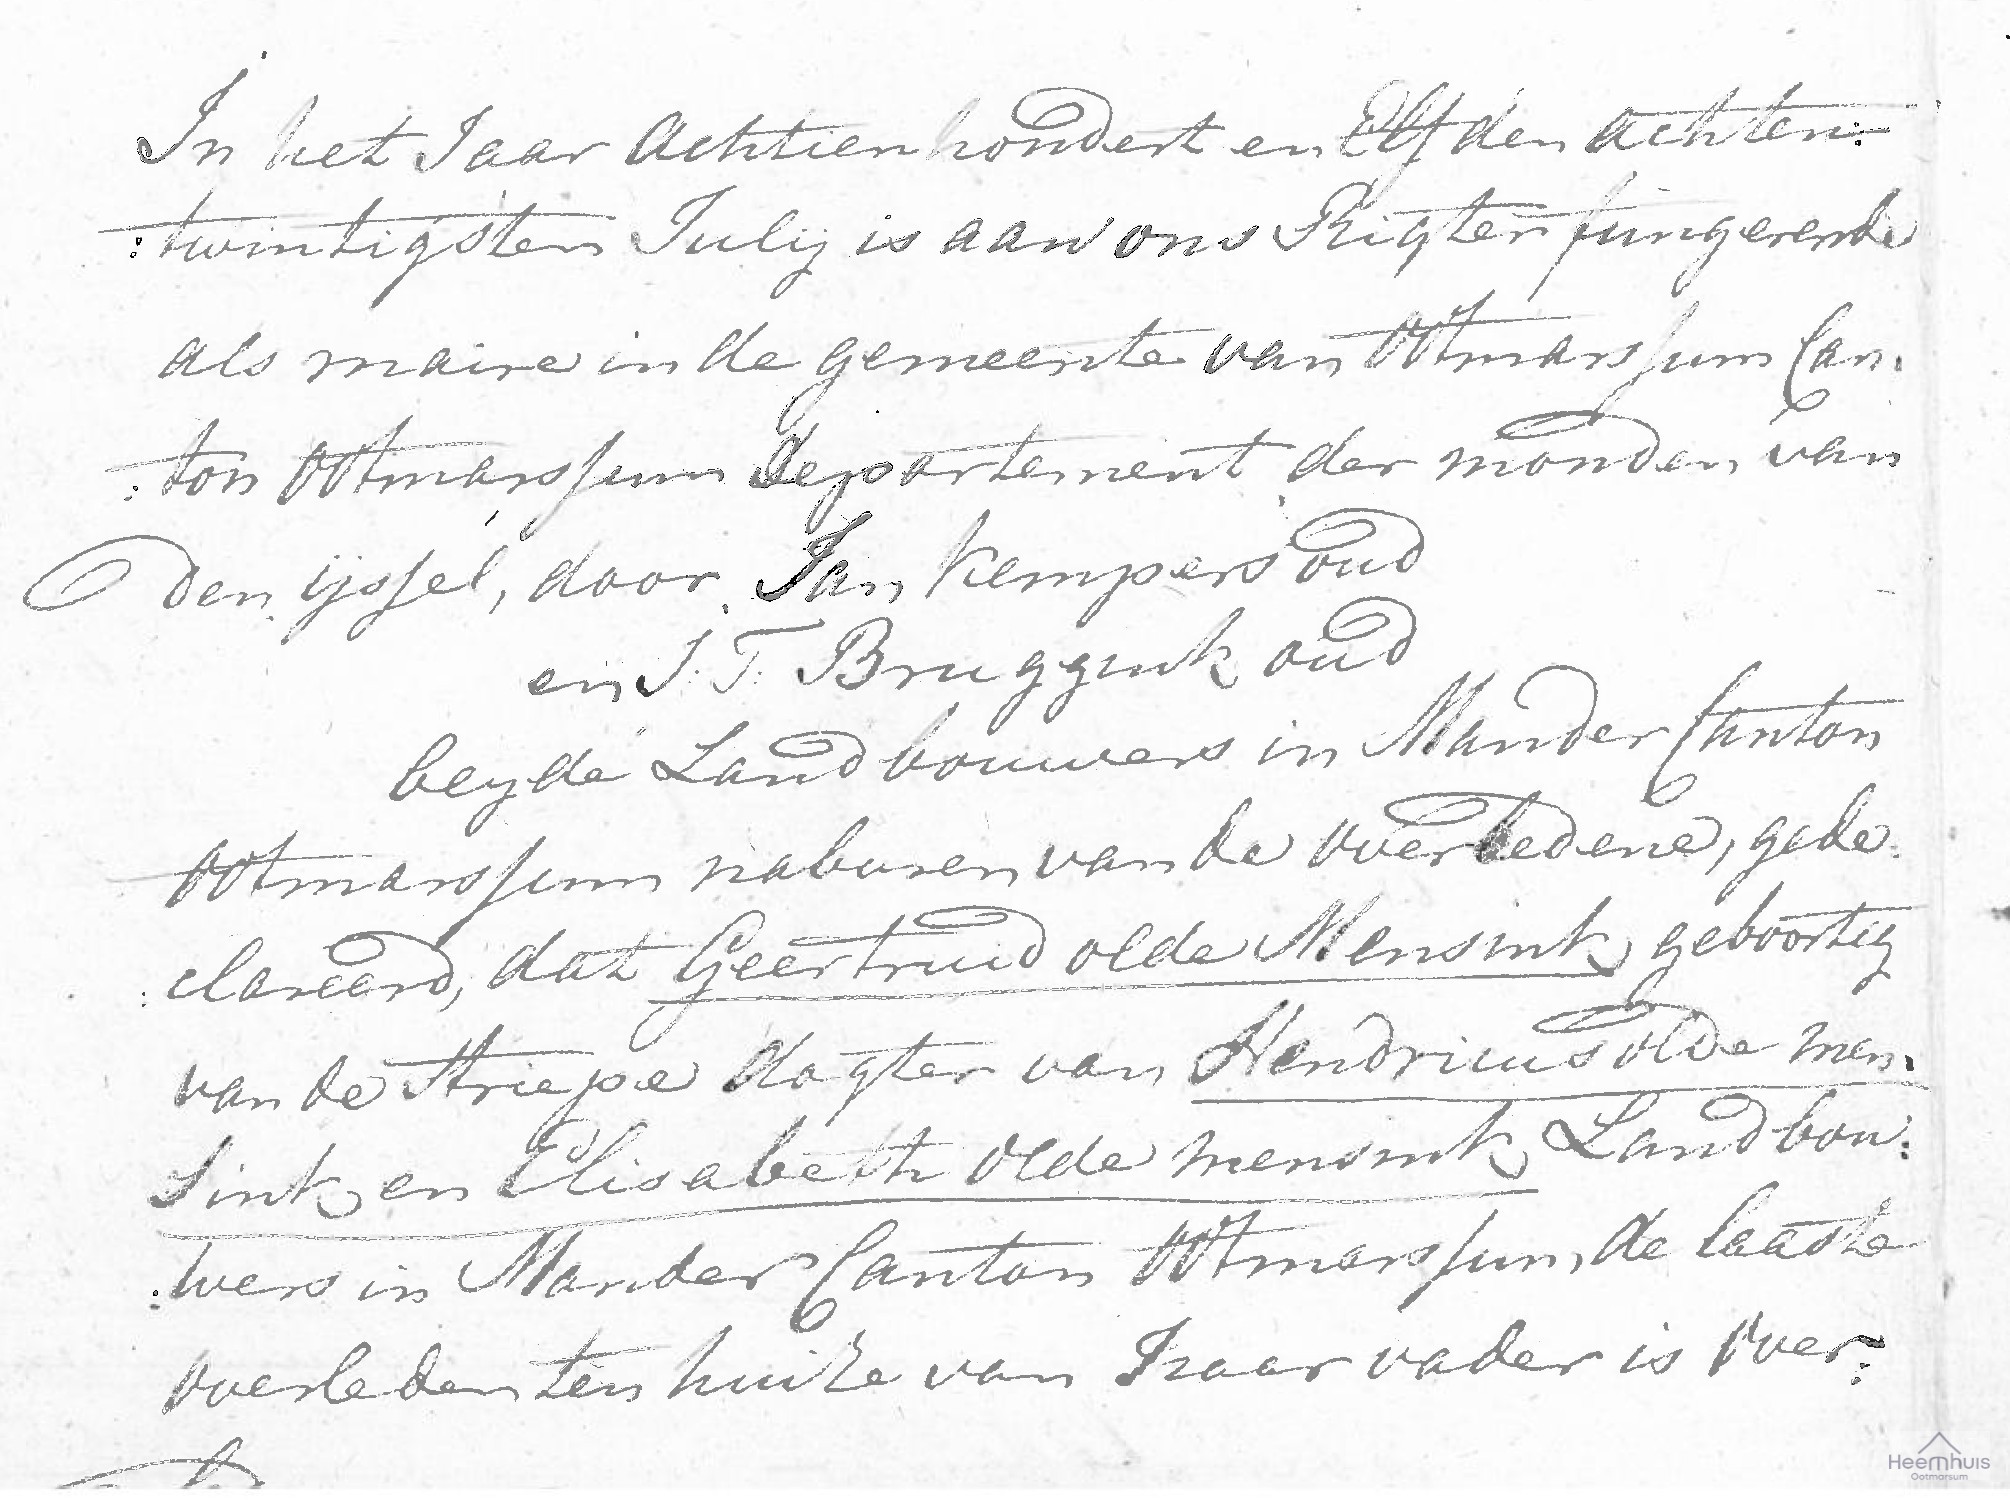 In het Jaar Achtienhondert en Elf den achten:
:twintigsten Julij is aan ons Rigter fungerende
als maire in de gemeente van Ootmarssum Can:
:ton Ootmarssum departement der monden van
den ijssel, door Jan Kempers oud
en J: T: Bruggink oud
beyde Landbouwers in Mander Canton
Ootmarssum naburen van de overledene, gede:
:clareerd, dat Geertruid olde Mensink geboortig
van de Striepe dogter van Hendricus olde men:
sink en Elisabeth olde mensink Landbou:
:wers in Mander Canton Ootmarssum, de laaste
overleden ten huize van Haar vader is over:
Heemhuis
Ootmarsum